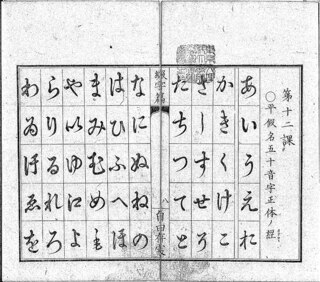 第十二課
○平假名五十音字正体ノ経
あいうえお
かきくけこ
さしすせそ
たちつてと
綴字篇
八
なにぬねの
はひふへほ
まみむめも
や以ゆ江よ
らりるれろ
わゐゑを